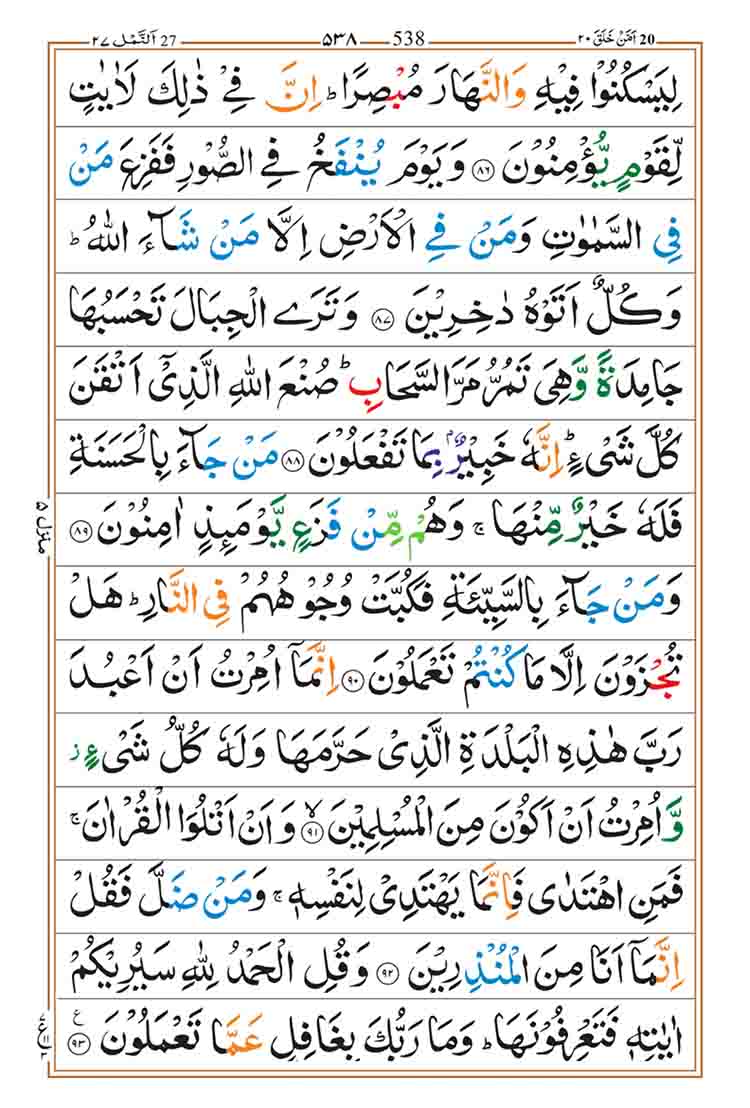 20 اَمَّنْ خَلَقَ ٢٠ 538 ٥٣٨ 27 اَلنَّمْل ٢٧
لِيَسْكُنُوْا فِيْهِ وَالنَّهَارَ مُبْصِرًا ؕ اِنَّ فِيْ ذٰلِكَ لَاٰيٰتٍ
لِّقَوْمٍ يُّؤْمِنُوْنَ ﴿٨٦﴾ وَيَوْمَ يُنْفَخُ فِي الصُّوْرِ فَفَزِعَ مَنْ
فِي السَّمٰوٰتِ وَمَنْ فِي الْاَرْضِ اِلَّا مَنْ شَآءَ اللّٰهُ ؕ
وَكُلٌّ اَتَوْهُ دٰخِرِيْنَ ﴿٨٧﴾ وَتَرَى الْجِبَالَ تَحْسَبُهَا
جَامِدَةً وَّهِيَ تَمُرُّ مَرَّ السَّحَابِ ؕ صُنْعَ اللّٰهِ الَّذِيْۤ اَتْقَنَ
كُلَّ شَيْءٍ ؕ اِنَّهٗ خَبِيْرٌۢ بِمَا تَفْعَلُوْنَ ﴿٨٨﴾ مَنْ جَآءَ بِالْحَسَنَةِ
فَلَهٗ خَيْرٌ مِّنْهَا ۚ وَهُمْ مِّنْ فَزَعٍ يَّوْمَئِذٍ اٰمِنُوْنَ ﴿٨٩﴾
وَمَنْ جَآءَ بِالسَّيِّئَةِ فَكُبَّتْ وُجُوْهُهُمْ فِي النَّارِ ؕ هَلْ
تُجْزَوْنَ اِلَّا مَا كُنْتُمْ تَعْمَلُوْنَ ﴿٩٠﴾ اِنَّمَاۤ اُمِرْتُ اَنْ اَعْبُدَ
رَبَّ هٰذِهِ الْبَلْدَةِ الَّذِيْ حَرَّمَهَا وَلَهٗ كُلُّ شَيْءٍ ز
وَّاُمِرْتُ اَنْ اَكُوْنَ مِنَ الْمُسْلِمِيْنَ ۙ﴿٩١﴾ وَاَنْ اَتْلُوَا الْقُرْاٰنَ ۚ
فَمَنِ اهْتَدٰى فَاِنَّمَا يَهْتَدِيْ لِنَفْسِهٖ ۚ وَمَنْ ضَلَّ فَقُلْ
اِنَّمَاۤ اَنَا مِنَ الْمُنْذِرِيْنَ ﴿٩٢﴾ وَقُلِ الْحَمْدُ لِلّٰهِ سَيُرِيْكُمْ
اٰيٰتِهٖ فَتَعْرِفُوْنَهَا ؕ وَمَا رَبُّكَ بِغَافِلٍ عَمَّا تَعْمَلُوْنَ ﴿٩٣﴾ ع
منزل ٥